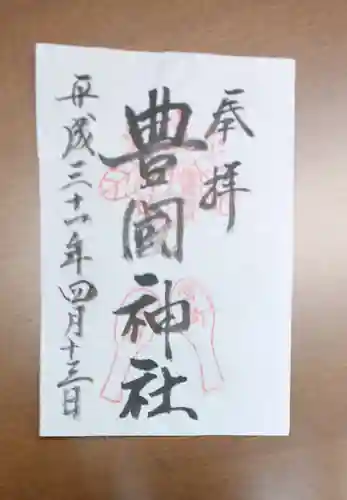 奉拝
豊國神社
平成三十一年四月十三日